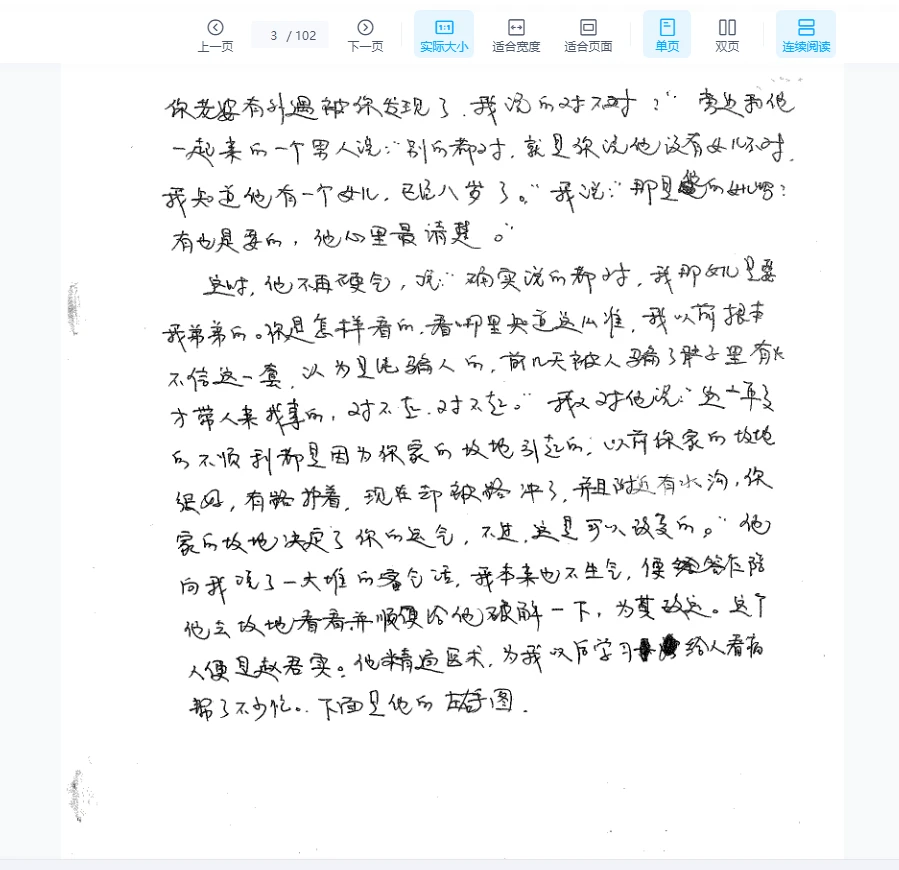 上一页 3 / 102 下一页 1:1 实际大小 适合宽度 适合页面 单页 双页 连续阅读
你老婆有外遇被你发现了，我说的对不对？”旁边和他
一起来的一个男人说：“别的都对，就是你说他没有女儿不对，
我知道他有一个女儿，已经八岁了。”我说：“那是的女儿吗？
有也是要的，他心里最清楚。”
这时，他不再硬气，说：“确实说的都对，我那女儿是要
我弟弟的。你是怎样看的，看哪里知道这么准，我以前根本
不信这一套，认为是骗人的，前几天被人骗了脖子里有
才带人来找事的，对不起，对不起。”我又对他说：“这一年
的不顺利都是因为你家的坟地引起的；以前你家的坟地
很好，有路护着，现在却被路冲了，并且附近有水沟，你
家的坟地决定了你的运气，不过，这是可以改变的。”他
向我说了一大堆的客气话，我本来也不生气，便答应陪
他去坟地看看并顺便给他破解一下，为其改运。这个
人便是赵君实。他精通医术，为我以后学习给人看病
帮了不少忙。下面是他的左手图.